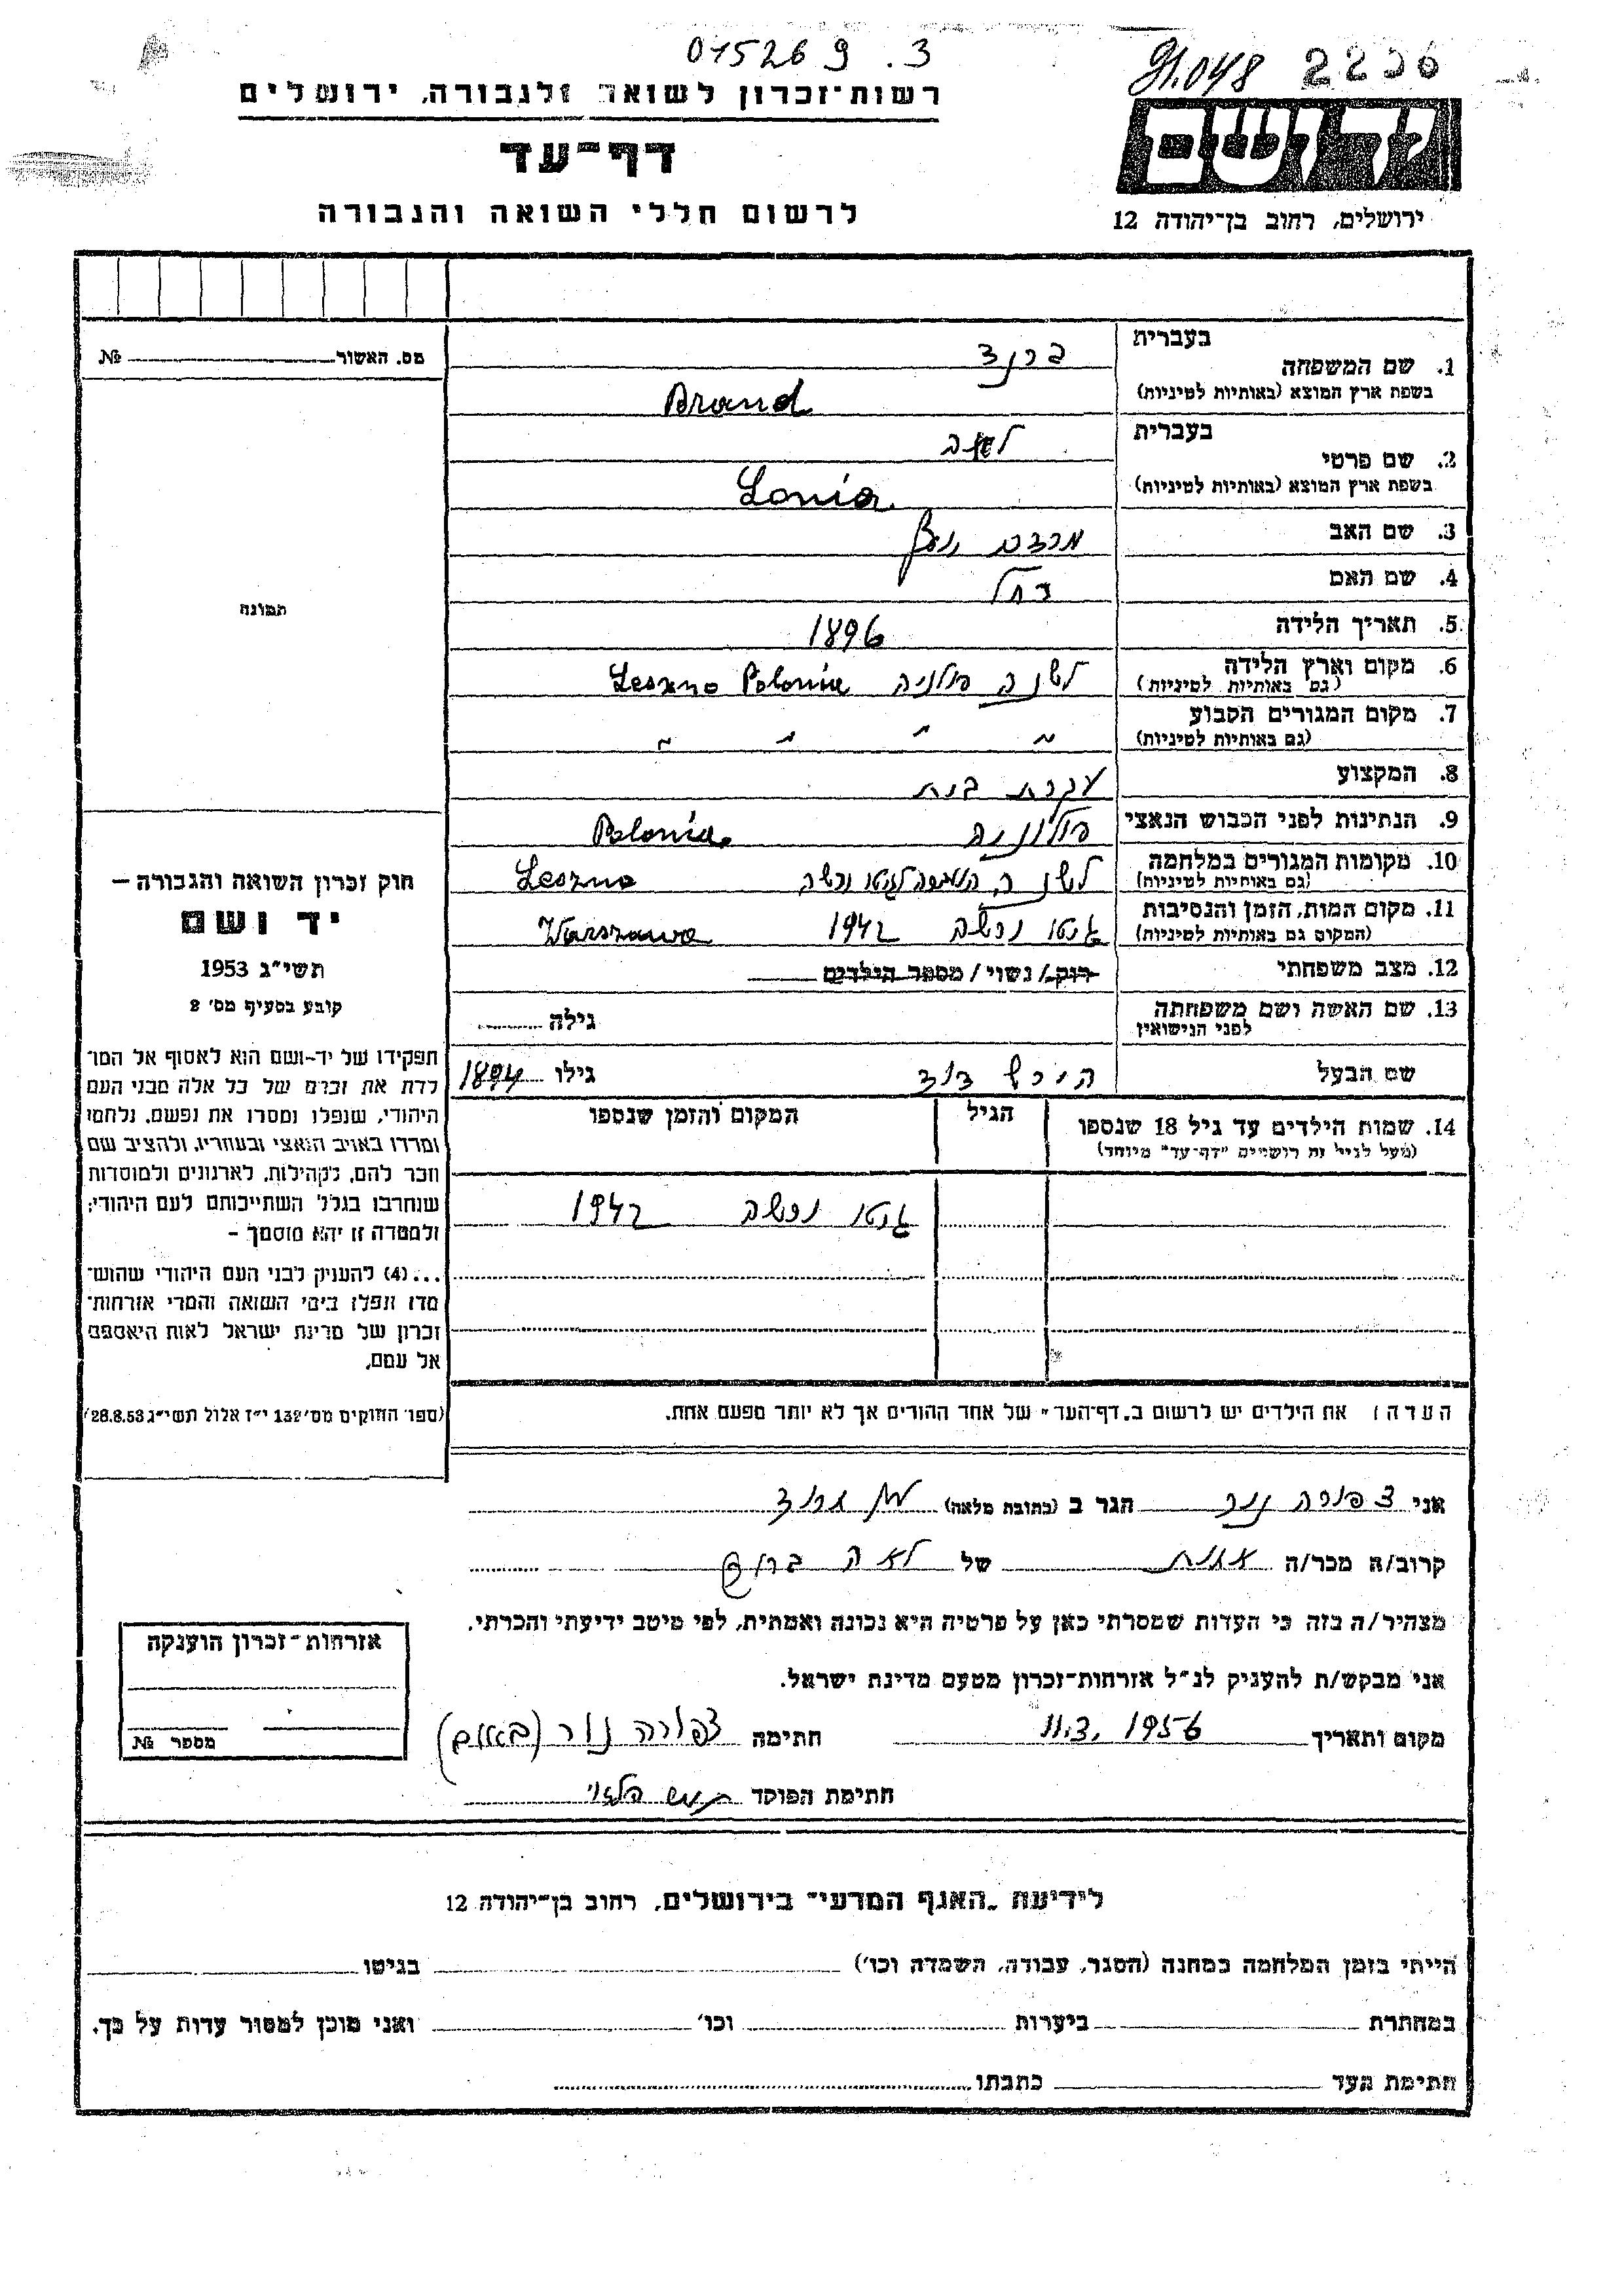 015269 .3
91.048 2236
רשות־זכרון לשואה ולגבורה, ירושלים
יד ושם
דף־עד
לרשום חללי השואה והגבורה
ירושלים, רחוב בן־יהודה 12
מס. האשור №
בעברית ברנד
1. שם המשפחה
בשפת ארץ המוצא (באותיות לטיניות) Brand
בעברית
2. שם פרטי
בשפת ארץ המוצא (באותיות לטיניות) Lonia
3. שם האב מרדכי
4. שם האם רחל
5. תאריך הלידה 1896
6. מקום וארץ הלידה לשנה פולניה Leszno Polonia
(גם באותיות לטיניות)
7. מקום המגורים הקבוע " " " "
(גם באותיות לטיניות)
8. המקצוע עקרת בית
9. הנתינות לפני הכבוש הנאצי פולוניה Polonia
10. מקומות המגורים במלחמה לשנה, ורשה Leszno
(גם באותיות לטיניות)
11. מקום המות, הזמן והנסיבות גיטו ורשה 1942 Warszawa
(המקום גם באותיות לטיניות)
12. מצב משפחתי רוק/ נשוי/ מספר הילדים
13. שם האשה ושם משפחתה גילה
לפני הנישואין
שם הבעל הירש דוד גילו 1894
14. שמות הילדים עד גיל 18 שנספו הגיל המקום והזמן שנספו
(מעל לגיל זה רושמים "דף־עד" מיוחד)
גיטו ורשה 1942
תמונה
חוק זכרון השואה והגבורה —
יד ושם
תשי"ג 1953
קובע בסעיף מס' 2
תפקידו של יד-ושם הוא לאסוף אל המו־
לדת את זכרם של כל אלה מבני העם
היהודי, שנפלו ומסרו את נפשם, נלחמו
ומרדו באויב הנאצי ובעוזריו, ולהציב שם
וזכר להם, לקהילות, לארגונים ולמוסדות
שנחרבו בגלל השתייכותם לעם היהודי;
ולמטרה זו יהא מוסמך -
...(4) להעניק לבני העם היהודי שהוש־
מדו ונפלו בימי השואה והמרי אזרחות־
זכרון של מדינת ישראל לאות היאספם
אל עמם.
(ספר החוקים מס' 132 י"ז אלול תשי"ג 28.8.53)
הערה: את הילדים יש לרשום ב„דף־העד" של אחד ההורים אך לא יותר מפעם אחת.
אני צפורה נור הגר ב (כתובת מלאה)
קרוב/ה מכר/ה אחות של לאה ברנד
מצהיר/ה בזה כי העדות שמסרתי כאן על פרטיה היא נכונה ואמתית, לפי מיטב ידיעתי והכרתי.
אני מבקש/ת להעניק לנ"ל אזרחות־זכרון מטעם מדינת ישראל.
מקום ותאריך 1956 חתימה צפורה נור
חתימת הפוקד
אזרחות־זכרון הוענקה
מספר №
לידיעת „האגף המדעי" בירושלים, רחוב בן־יהודה 12
הייתי בזמן המלחמה במחנה (הסגר, עבודה, השמדה וכו') בגיטו
במחתרת ביערות וכו' ואני מוכן למסור עדות על כך.
חתימת העד כתבתו